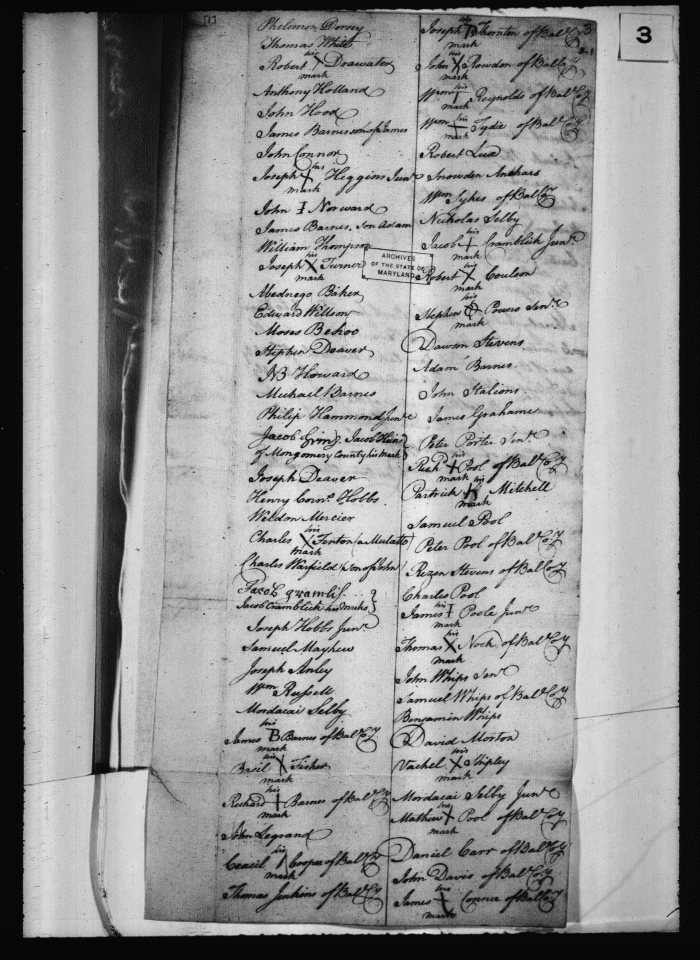 [1]
3
Phelemon Dorsey
Thomas White
Robert his X mark Drawater
Anthony Holland
John Hood
James Barnes son of James
John Connor
Joseph his X mark Higgins Junr
John I Norward
James Barnes, Son Adam
William Thompson
Joseph his X mark Turner
Abednego Baker
Edward Willson
Moses Beshoo
Stephen Deaver
NB Howard
Michael Barnes
Philip Hammond Junr
Jacob Jacob
of Montgomery County his mark
Joseph Deaver
Henry Cornr Hobbs
Weldon Mercier
Charles his X mark Fenton (a Mulatto
Charles Warfield Son of John
Jacob
Jacob Cramblick his
Joseph Hobbs Junr
Samuel Mayhew
Joseph Anley
Wm Russell
Mordacai Selby
James his B mark Barnes of Balt Cty
Basil his X mark Fisher
Richard his + mark Barnes of Balt Cty
John Legrand
Ceacil his mark Cooper of Balt Cty
Thomas Jenkins of Balt Cty
ARCHIVES
OF THE STATE OF
MARYLAND
Joseph his mark Thornton of Balt Cty
John his X mark Rowden of Balt Cty
Wm his mark Reynolds of Balt Cty
Wm his + mark Tydie of Balt Cty
Robert Lux
Snowden Anchars
Wm Sykes of Balt Cty
Nicholas Selby
Jacob his + mark Cramblick Junr
Robert his X mark Coulson
Stephen his mark Powers Senr
Dawson Stevens
Adam Barnes
John Stalions
James Grahame
Peter Porter Senr
Richd his + mark Pool of Balt Cty
Partrick his mark Mitchell
Samuel Pool
Peter Pool of Balt Cty
Rezen Stevens of Balt Cty
Charles Pool
James his I mark Poole Junr
Thomas his X mark Nock of Balt Cty
John Whips Senr
Samuel Whips of Balt Cty
Benjamin Whips
David Morton
Vachel his X mark Shipley
Mordacai Selby Junr
Mathew his mark Pool of Balt Cty
Daniel Carr of Balt Cty
John Davis of Balt Cty
James his + mark Connor of Balt Cty